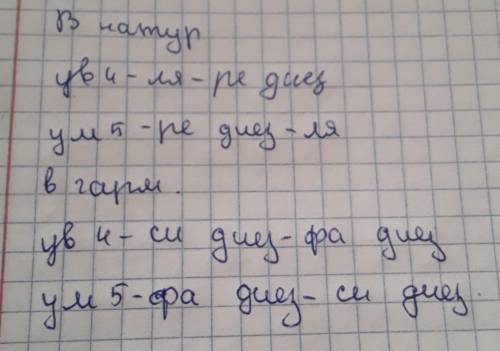 В натур
ув 4 - ля - ре диез
ум 5 - ре диез - ля
в гарм.
ув 4 - си диез - фа диез
ум 5 - фа диез - си диез.